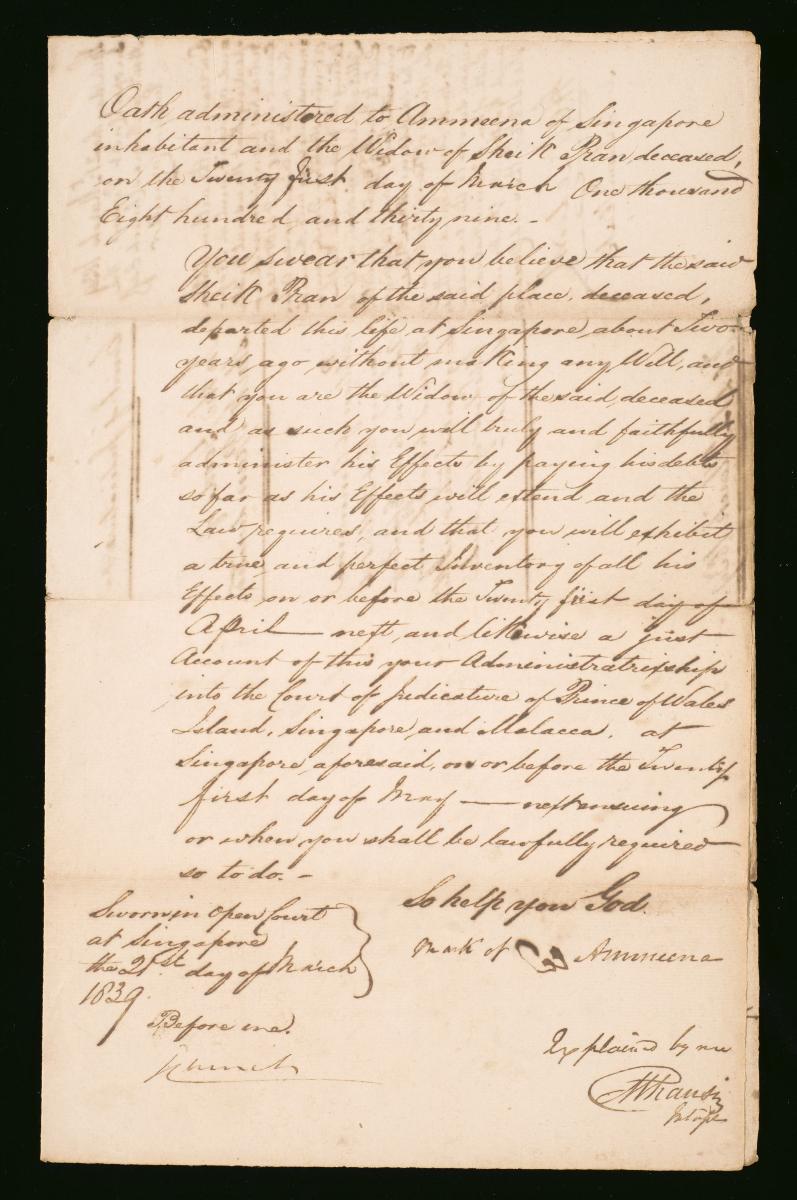 Oath administered to Ammeena of Singapore
inhabitant and the Widow of Sheik Pran deceased,
on the Twenty first day of March One thousand
Eight hundred and thirty nine. -
You swear that you believe that the said
Sheik Pran of the said place, deceased,
departed this life at Singapore about Two
years ago without making any Will, and
that you are the Widow of the said deceased
and as such you will truly and faithfully
administer his Effects by paying his debts
so far as his Effects will extend and the
Law requires, and that you will exhibit
a true and perfect Inventory of all his
Effects on or before the Twenty first day of
April — next, and likewise a just
Account of this your Administratrixship
into the Court of Judicature of Prince of Wales
Island, Singapore, and Malacca, at
Singapore aforesaid, on or before the Twenty
first day of May — next ensuing
or when you shall be lawfully required
so to do. -
So help you God.
Sworn in open Court
at Singapore
the 21st day of March
1839.
Mark of Ammeena
Before me.
Explained by me